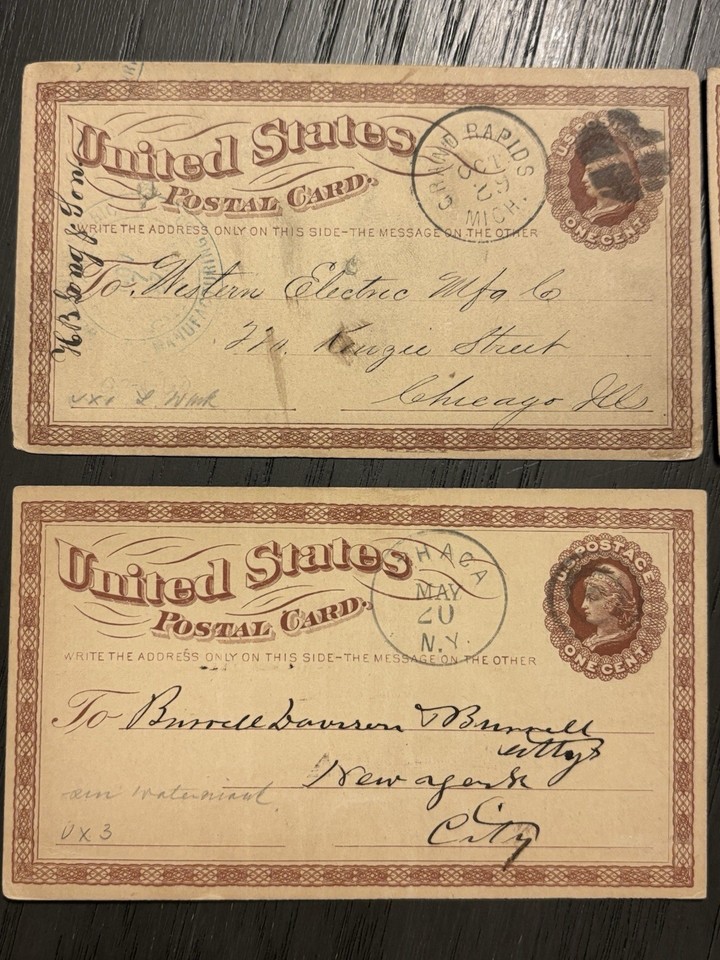 United States
POSTAL CARD.
WRITE THE ADDRESS ONLY ON THIS SIDE-THE MESSAGE ON THE OTHER
GRAND RAPIDS
OCT
29
MICH.
U.S. POSTAGE
ONE CENT
MANUFACTURING
To Western Electric Mfg Co
220. Kinzie Street
Chicago Ills
United States
POSTAL CARD.
WRITE THE ADDRESS ONLY ON THIS SIDE-THE MESSAGE ON THE OTHER
ITHACA
MAY
20
N.Y.
U.S. POSTAGE
ONE CENT
To Burrell Davison & Burrell
Attys
New York
City
UX3